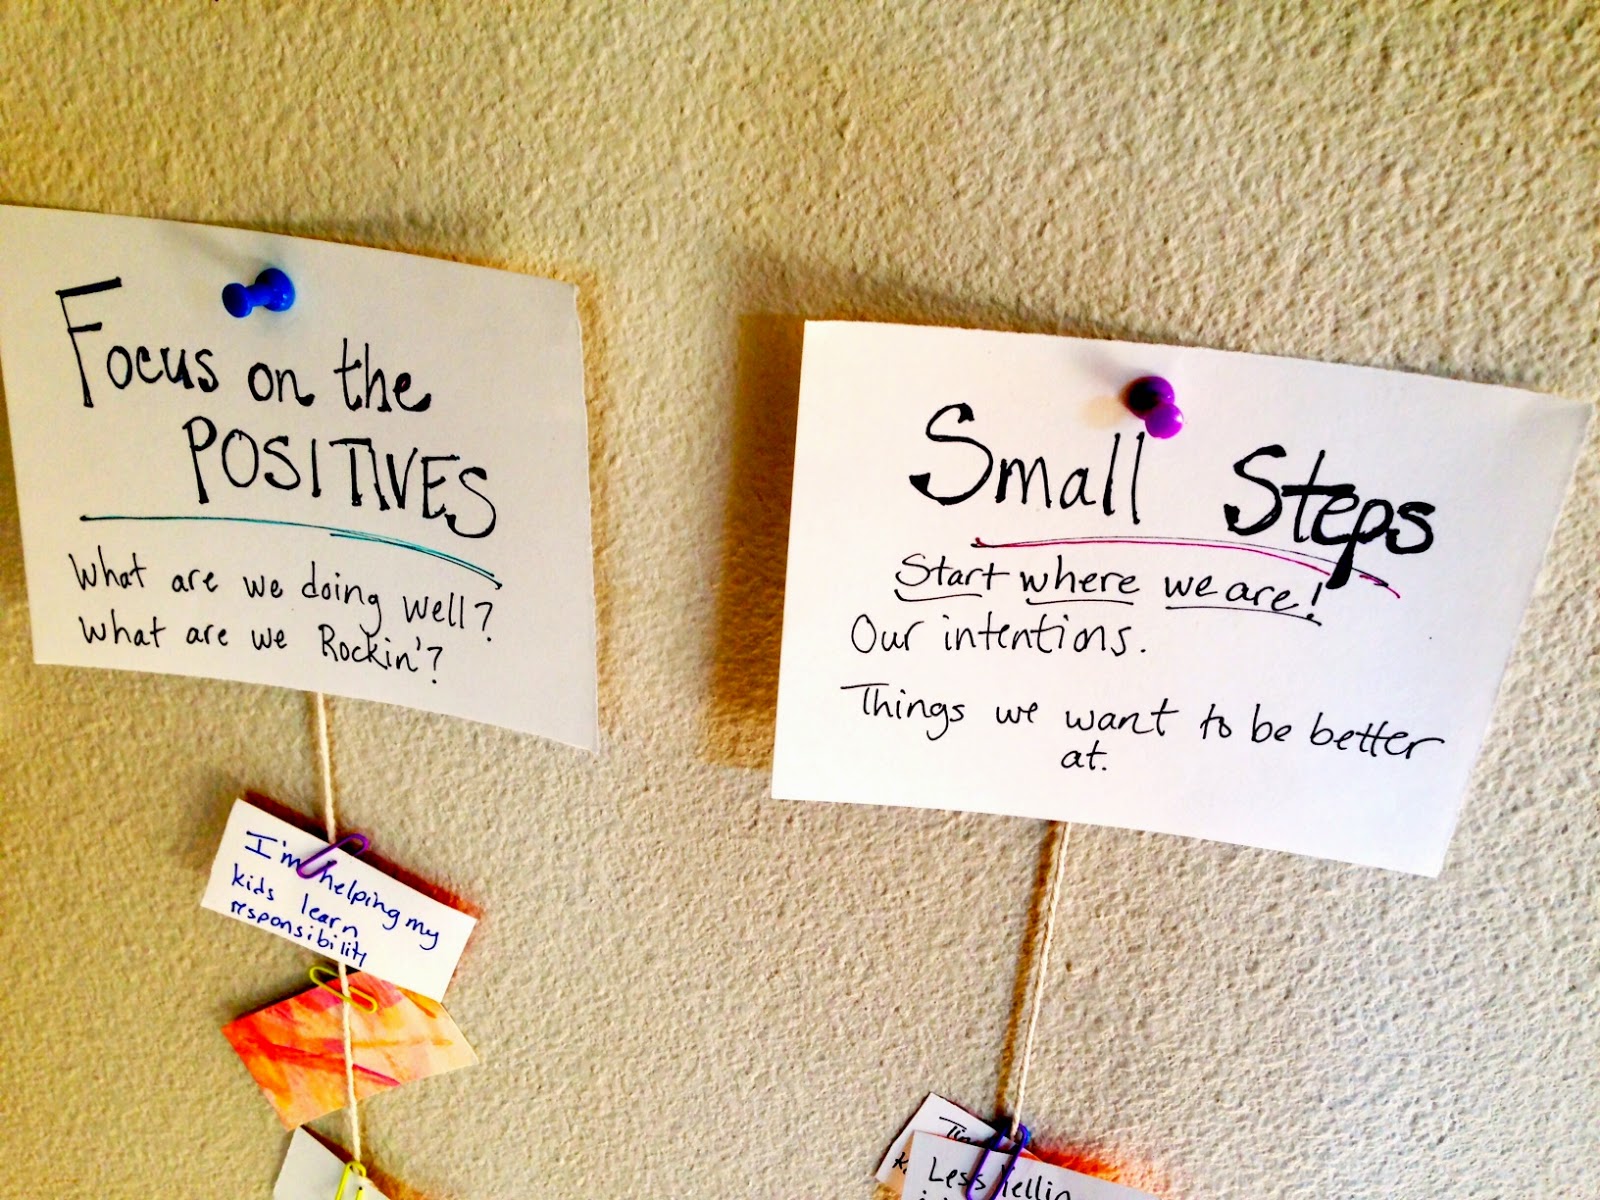 Focus on the
POSITIVES
What are we doing well?
What are we Rockin'?
I'm helping my
kids learn
responsibility
Small Steps
Start where we are!
Our intentions.
Things we want to be better
at.
Less